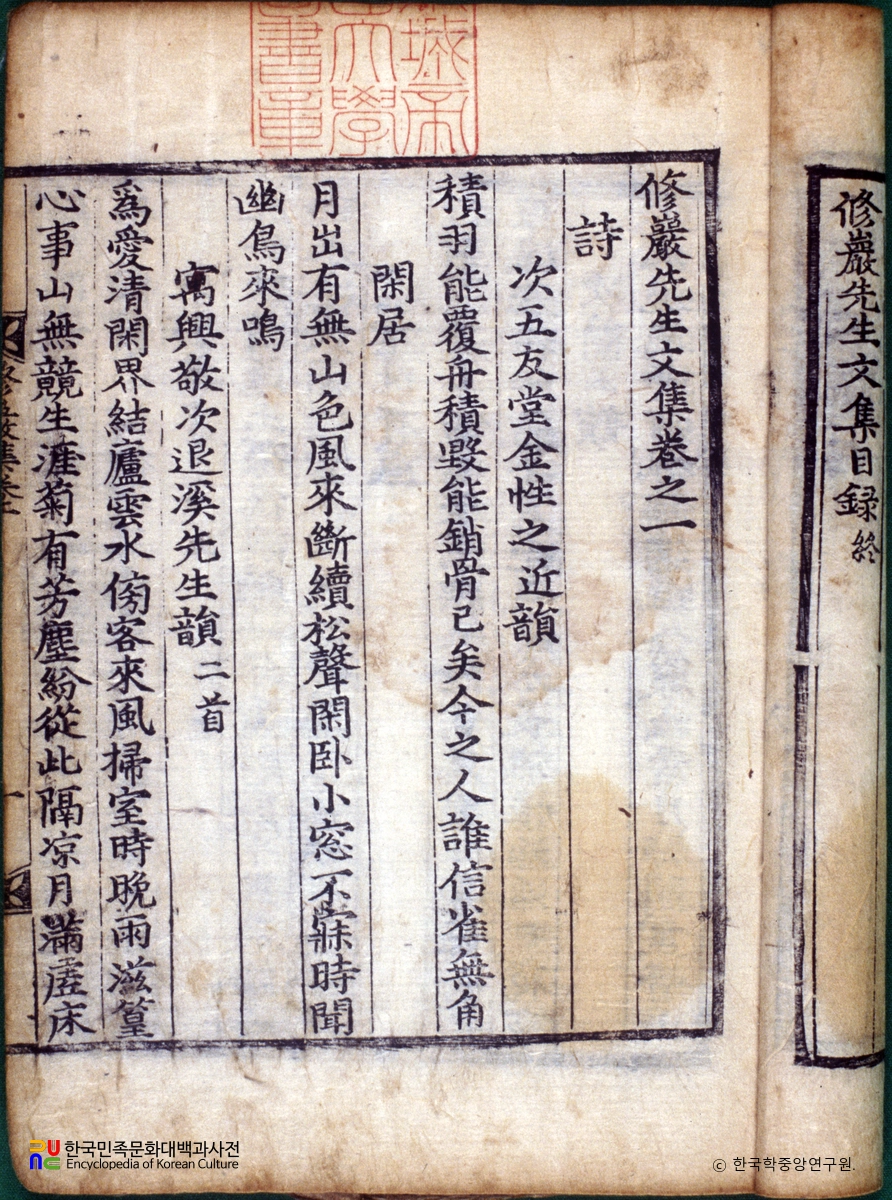 修巖先生文集目録 終
修巖先生文集卷之一
詩
次五友堂金性之近韻
積羽能覆舟積毀能銷骨已矣今之人誰信雀無角
閑居
月出有無山色風來斷續松聲閑卧小窓不寐時聞
幽鳥來鳴
寓興敬次退溪先生韻 二首
爲愛清閑界結廬雲水傍客來風掃室時晩雨滋篁
心事山無競生涯菊有芳塵紛從此隔凉月滿虛床
한국민족문화대백과사전
Encyclopedia of Korean Culture
© 한국학중앙연구원.